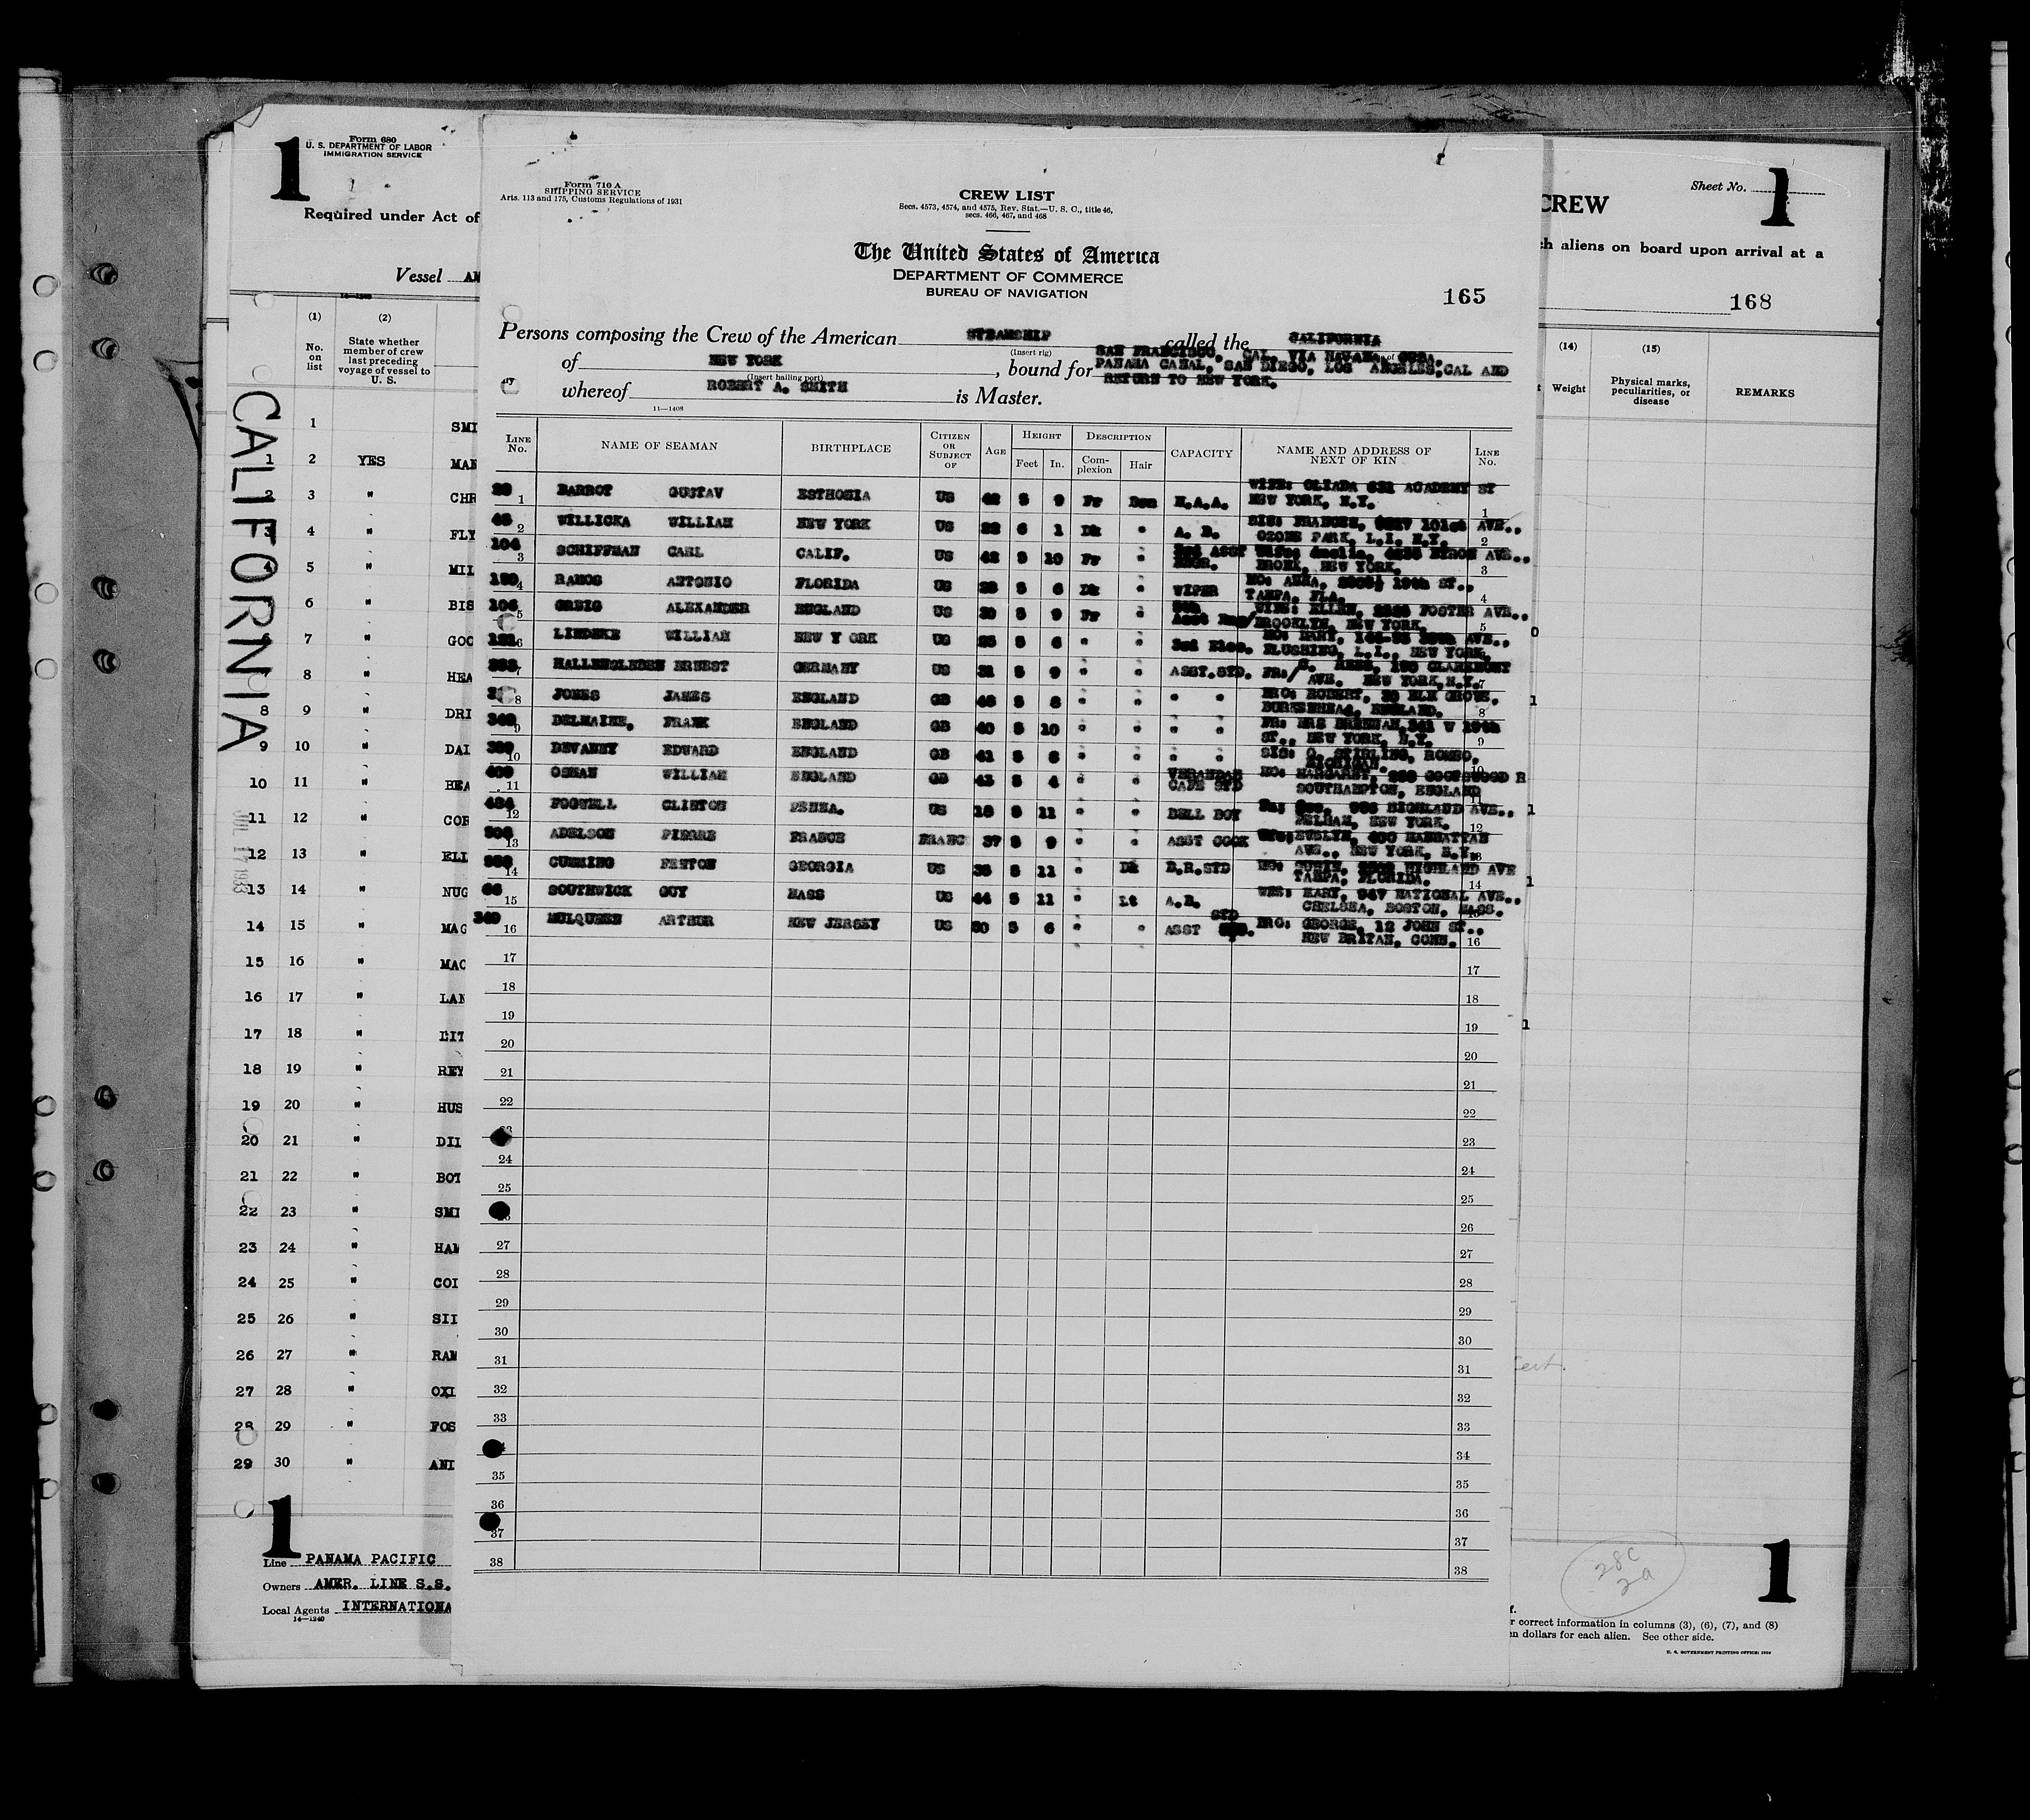 1
Form 680
U. S. DEPARTMENT OF LABOR
IMMIGRATION SERVICE
Required under Act of
Vessel AM
(1) (2)
No. on list
State whether member of crew last preceding voyage of vessel to U. S.
CALIFORNIA
JUL 17 1933
1 SMI
1 2 YES MAN
2 3 " CHR
3 4 " FLY
4 5 " MIL
6 " BIS
7 " GOO
8 " HEA
8 9 " DRI
9 10 " DAI
10 11 " BEA
11 12 " COR
12 13 " ELL
13 14 " NUG
14 15 " MAG
15 16 " MAC
16 17 " LAN
17 18 " LIT
18 19 " REY
19 20 " HUS
20 21 " DIL
21 22 " BOT
22 23 " SMI
23 24 " HAM
24 25 " COL
25 26 " SII
26 27 " RAM
27 28 " OXL
28 29 " FOS
29 30 " AND
1
Line PANAMA PACIFIC
Owners AMER. LINE S.S.
Local Agents INTERNATIONA
14—1240
Form 710 A
SHIPPING SERVICE
Arts. 113 and 175, Customs Regulations of 1931
CREW LIST
Secs. 4573, 4574, and 4575, Rev. Stat.—U. S. C., title 46,
secs. 466, 467, and 468
The United States of America
DEPARTMENT OF COMMERCE
BUREAU OF NAVIGATION
165
Persons composing the Crew of the American STEAMSHIP called the CALIFORNIA
(Insert rig)
of NEW YORK, bound for SAN FRANCISCO, CAL. VIA HAVANA, CUBA.
PANAMA CANAL, SAN DIEGO, LOS ANGELES,CAL AND
(Insert hailing port)
RETURN TO NEW YORK.
whereof ROBERT A. SMITH is Master.
11—1408
LINE No. NAME OF SEAMAN BIRTHPLACE CITIZEN OR SUBJECT OF AGE HEIGHT Feet In. DESCRIPTION Complexion Hair CAPACITY NAME AND ADDRESS OF NEXT OF KIN LINE No.
1 BARROT GUSTAV ESTHONIA US 42 5 9 Fr Bwn WIFE: ACADEMY ST NEW YORK, N.Y. 1
2 WILLICKA WILLIAM NEW YORK US 6 1 Dk " A. B. SIS: FRANCES, 101st AVE., OZONE PARK, L.I. N.Y. 2
104 3 SCHIFFMAN CARL CALIF. US 42 5 10 Fr " 3rd ASST ENGR. Wife: Amelia, BYRON AVE., BRONX, NEW YORK. 3
4 RAMOS ANTONIO FLORIDA US 5 6 Dk " WIPER MO: ANNA, 19th ST., TAMPA, FLA. 4
106 5 GREIG ALEXANDER ENGLAND US 5 9 Fr " Asst WIFE: ELLEN, FOSTER AVE., BROOKLYN, NEW YORK. 5
6 LINDEKE WILLIAM NEW Y ORK US 5 6 " " 3rd Elec. MO: MARY, AVE., FLUSHING, L.I., NEW YORK. 6
7 HALLENGLEBEN ERNEST GERMANY US 5 9 " " ASST.STD. FR: CLAREMONT AVE. NEW YORK,N.Y. 7
8 JONES JAMES ENGLAND GB 5 8 " " " " BRO: ROBERT, ELM GROVE, ENGLAND. 8
9 DELMAINE, FRANK ENGLAND GB 40 5 10 " " " " FR: MRS W 19th ST., NEW YORK, N.Y. 9
10 DEVANEY EDWARD ENGLAND GB 41 5 " " " " SIS: STIRLING, ROMEO, MICHIGAN. 10
11 OSMAN WILLIAM ENGLAND GB 43 5 4 " " VERANDAH CAFE STD MO: MARGARET, SOUTHAMPTON, ENGLAND 11
12 FOGWELL CLINTON PENNA. US 18 5 11 " " BELL BOY HIGHLAND AVE., PELHAM, NEW YORK. 12
13 ADELSON PIERRE FRANCE FRANC 37 5 9 " " ASST COOK EVELYN, MANHATTAN AVE., NEW YORK, N.Y. 13
14 CUMMING FENTON GEORGIA US 5 11 " Dk B.R.STD MO: HIGHLAND AVE TAMPA, FLORIDA. 14
15 SOUTHWICK GUY MASS US 44 5 11 " Lt A.B. MARY, 947 NATIONAL AVE., CHELSEA, BOSTON, MASS. 15
349 16 MULQUEEN ARTHUR NEW JERSEY US 5 6 " " ASST STD BRO: GEORGE, 12 JOHN ST., NEW BRITAN, CONN. 16
17 17
18 18
19 19
20 20
21 21
22 22
23 23
24 24
25 25
26 26
27 27
28 28
29 29
30 30
31 31
32 32
33 33
34
35 35
36 36
37 37
38 38
CREW
Sheet No. 1
ch aliens on board upon arrival at a
168
(14) (15)
Weight
Physical marks, peculiarities, or disease
REMARKS
28C
2a
1
r correct information in columns (3), (6), (7), and (8)
en dollars for each alien. See other side.